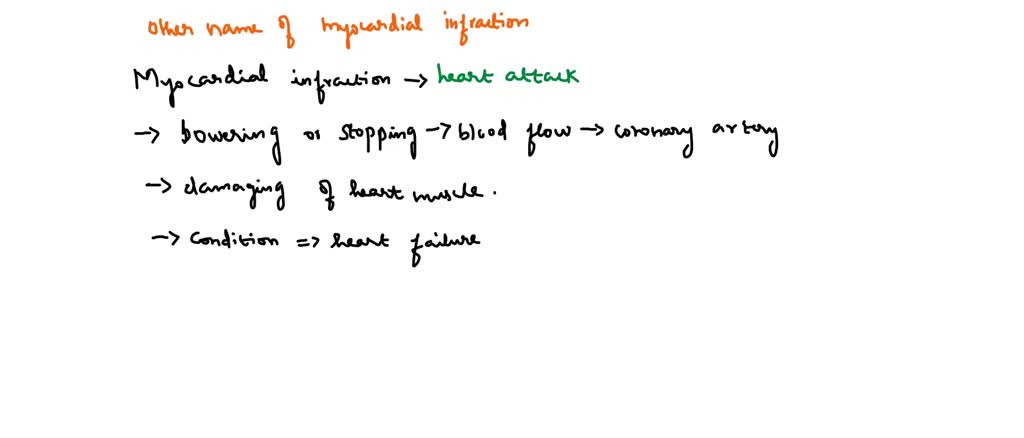 other name of myocardial infraction
Myocardial infraction → heart attack
→ bowering or stopping → blood flow → coronary artery
→ damaging of heart muscle.
→ condition => heart failure